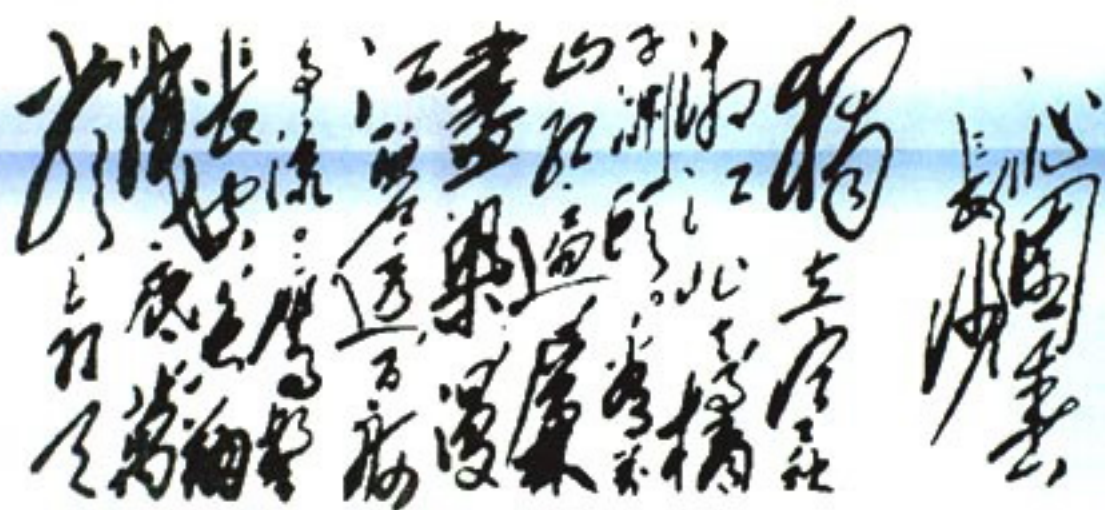 沁園春
長沙
獨立寒秋
湘江北去橘
子洲頭看萬
山紅遍層林
盡染漫
江碧透百舸
爭流鷹擊
長空魚翔
淺底萬
類霜天